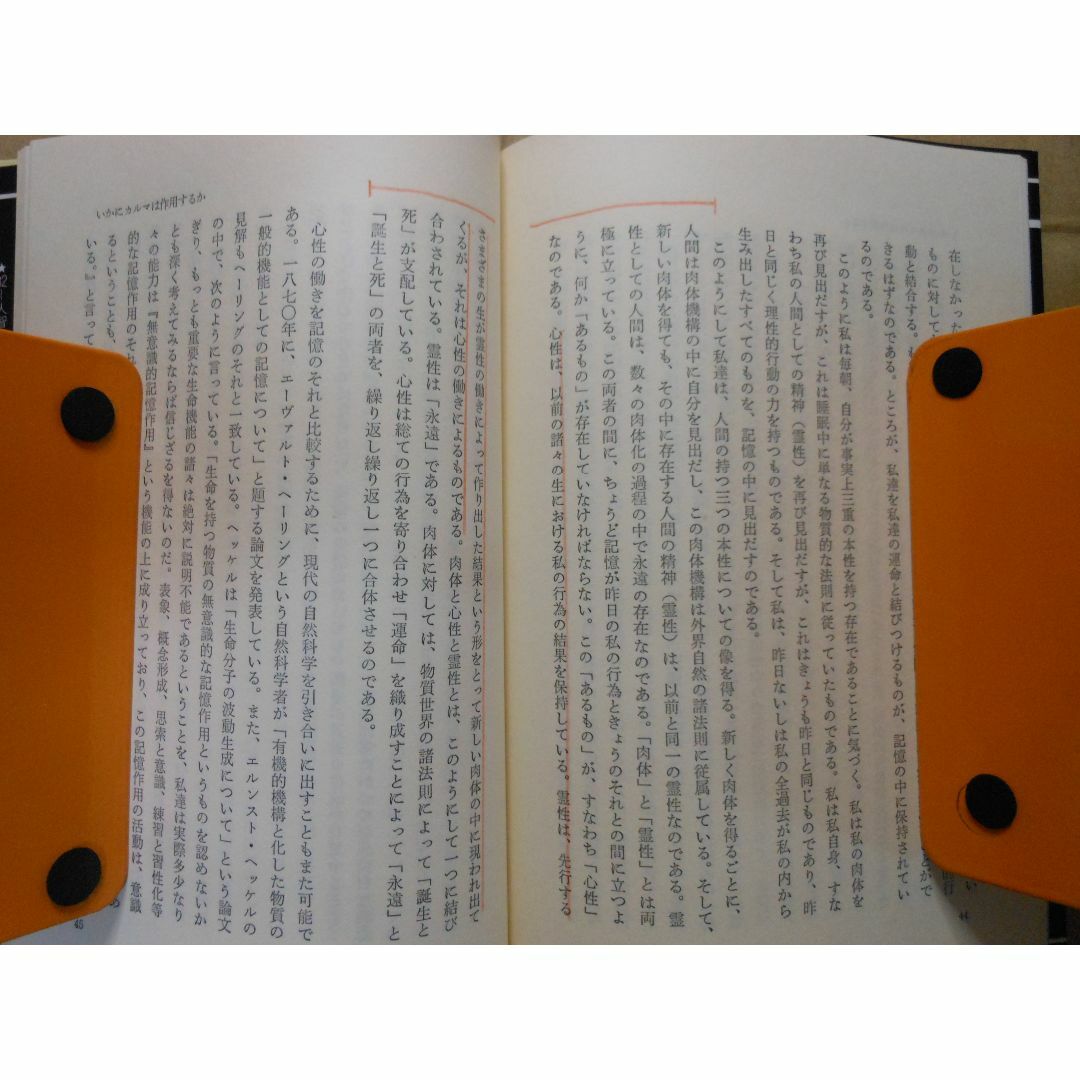 在しなかった
ものに対して
動と結合する。
きるはずなのである。ところが、私達を私達の運命と結びつけるものが、記憶の中に保持されてい
るものである。
このように私は毎朝、自分が事実上三重の本性を持つ存在であることに気づく。私は私の肉体を
再び見出だすが、これは睡眠中に単なる物質的な法則に従っていたものである。私は私自身、すな
わち私の人間としての精神（霊性）を再び見出だすが、これはきょうも昨日と同じものであり、昨
日と同じく理性的行動の力を持つものである。そして私は、昨日ないしは私の全過去が私の内から
生み出したすべてのものを、記憶の中に見出だすのである。
このようにして私達は、人間の持つ三つの本性についての像を得る。新しく肉体を得るごとに、
人間は肉体機構の中に自分を見出だし、この肉体機構は外界自然の諸法則に従属している。そして、
新しい肉体を得ても、その中に存在する人間の精神（霊性）は、以前と同一の霊性なのである。霊
性としての人間は、数々の肉体化の過程の中で永遠の存在なのである。「肉体」と「霊性」とは両
極に立っている。この両者の間に、ちょうど記憶が昨日の私の行為ときょうのそれとの間に立つよ
うに、何か「あるもの」が存在していなければならない。この「あるもの」が、すなわち「心性」
なのである。心性は、以前の諸々の生における私の行為の結果を保持している。霊性は、先行する
44
さまざまの生が霊性の働きによって作り出した結果という形をとって新しい肉体の中に現われ出て
くるが、それは心性の働きによるものである。肉体と心性と霊性とは、このようにして一つに結び
合わされている。霊性は「永遠」である。肉体に対しては、物質世界の諸法則によって「誕生と
死」が支配している。心性は総ての行為を寄り合わせ「運命」を織り成すことによって「永遠」と
「誕生と死」の両者を、繰り返し繰り返し一つに合体させるのである。
心性の働きを記憶のそれと比較するために、現代の自然科学を引き合いに出すこともまた可能で
ある。一八七〇年に、エーヴァルト・ヘーリングという自然科学者が「有機的機構と化した物質の
一般的機能としての記憶について」と題する論文を発表している。また、エルンスト・ヘッケルの
見解もヘーリングのそれと一致している。ヘッケルは「生命分子の波動生成について」という論文
の中で、次のように言っている。「生命を持つ物質の無意識的な記憶作用というものを認めないか
ぎり、もっとも重要な生命機能の諸々は絶対に説明不能であるということを、私達は実際多少なり
とも深く考えてみるならば信じざるを得ないのだ。表象、概念形成、思索と意識、練習と習性化等
々の能力は『無意識的記憶作用』という機能の上に成り立っており、この記憶作用の活動は、意識
的な記憶作用のそれ
るということも、
いる。』と言って
いかにカルマは作用するか
45